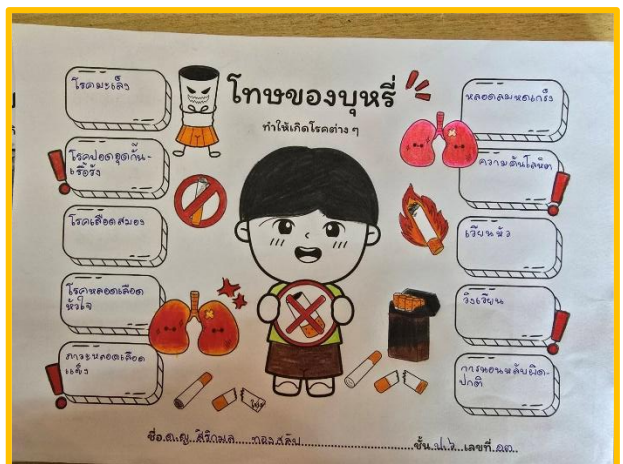 โทษของบุหรี่
ทำให้เกิดโรคต่าง ๆ
โรคมะเร็ง
โรคปอดอุดกั้น-
เรื้อรัง
โรคเลือดสมอง
โรคหลอดเลือด
หัวใจ
ภาวะหลอดเลือด
แข็ง
หลอดลมหดเกร็ง
ความดันโลหิต
เวียนหัว
วิงเวียน
การนอนหลับผิด-
ปกติ
ชื่อ ด.ญ. สิริกมล
ชั้น เลขที่